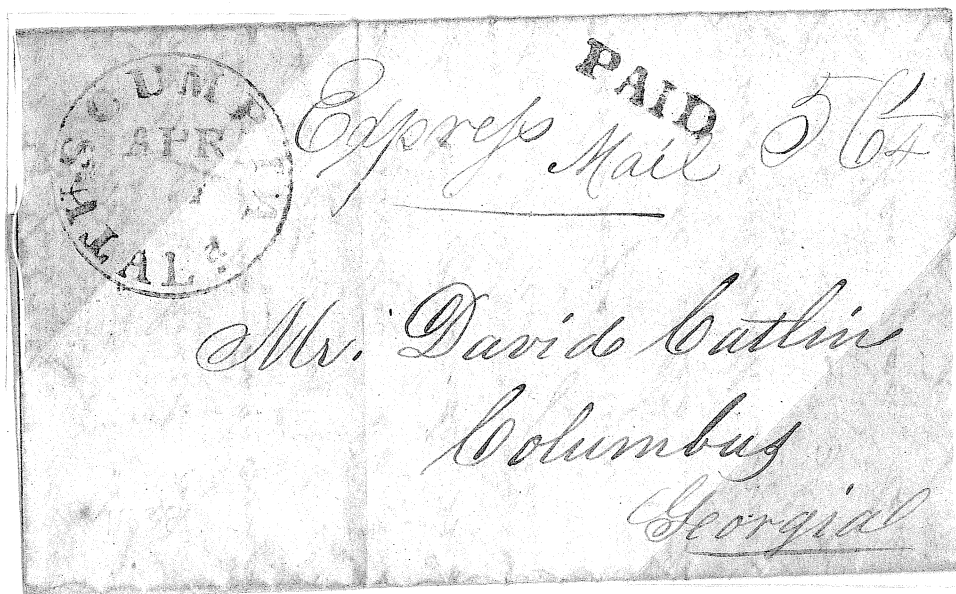 TUSCUMBIA
APR
AL
PAID
Express Mail 56 1/4
Mr. David Catlin
Columbus
Georgia